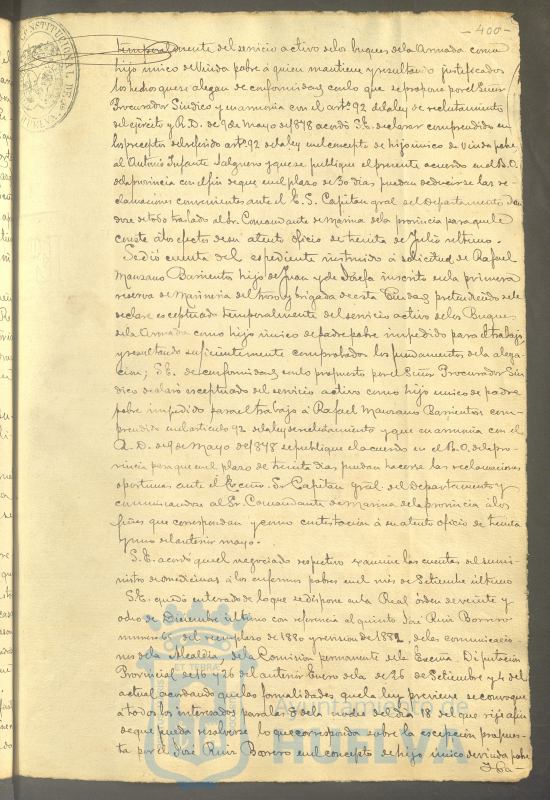 - 400 -
temporalmente del servicio activo de los buques de la Armada como
hijo único de viuda pobre á quien mantiene y resultando justificados
los hechos que se alegan de conformidad con lo que se propone por el Señor
Procurador Síndico y en armonía con el artº 92 de la ley de reclutamiento
del ejército y R. D. de 9 de Mayo de 1878 acordó S.E. declarar comprendido en
los preceptos del referido artº 92 de la ley en el concepto de hijo único de viuda pobre
al Antonio Infante Salguero y que se publique el presente acuerdo en el B. O.
de la provincia con el fin de que en el plazo de 30 dias puedan deducirse las re-
clamaciones convenientes ante el E. S. Capitan gral del Departamento dan
dose de todo traslado al Sr. Comandante de Marina de la provincia para que le
conste á los efectos de su atento oficio de treinta de Julio último.
Se dió cuenta del espediente instruido á solicitud de Rafael
Manzano Barrientos hijo de Juan y de Josefa inscrito en la primera
reserva de Marineria del trozo y brigada de esta Ciudad pretendiendo se le
declare esceptuado temporalmente del servicio activo de los Buques
de la Armada como hijo único de padre pobre impedido para el trabajo
y resultando suficientemente comprobados los fundamentos de la alega-
cion; S.E. de conformidad con lo propuesto por el Señor Procurador Sín
dico declaró esceptuado del servicio activo como hijo único de padre
pobre impedido para el trabajo á Rafael Manzano Barrientos com-
prendido en el artículo 92 de la ley de reclutamiento y que en armonia con el
R. D. de 9 de Mayo de 1878 se publique el acuerdo en el B. O. de la pro-
vincia para que en el plazo de treinta dias puedan hacerse las reclamaciones
oportunas ante el Excmo. Sr Capitan gral. del Departamento y
comunicandose al Sr. Comandante de Marina de la provincia á los
fines que correspondan y como contestacion á su atento oficio de treinta
y uno del anterior mayo.
S.E. acordó que el negociado respectivo examine las cuentas del sumi-
nistro de medicinas á los enfermos pobres en el mes de Setiembre último
S.E. quedó enterado de lo que se dispone en la Real órden de veinte y
ocho de Diciembre último con referencia al quinto José Ruiz Borrero
número 65 del reemplazo de 1880 y revision de 1882, de las comunicacio-
nes de la Alcaldia, de la Comision permanente de la Excma. Diputacion
Provincial de 16 y 26 del anterior Enero de la de 26 de Setiembre y 4 del
actual acordando que las formalidades que la ley previene se convoque
á todos los interesados para las 8 de la noche del dia 18 del que rije a fin
de que pueda resolverse lo que corresponda sobre la escepcion propues-
ta por el José Ruiz Borrero en el concepto de hijo único de viuda pobre
Ayuntamiento de
HUELVA